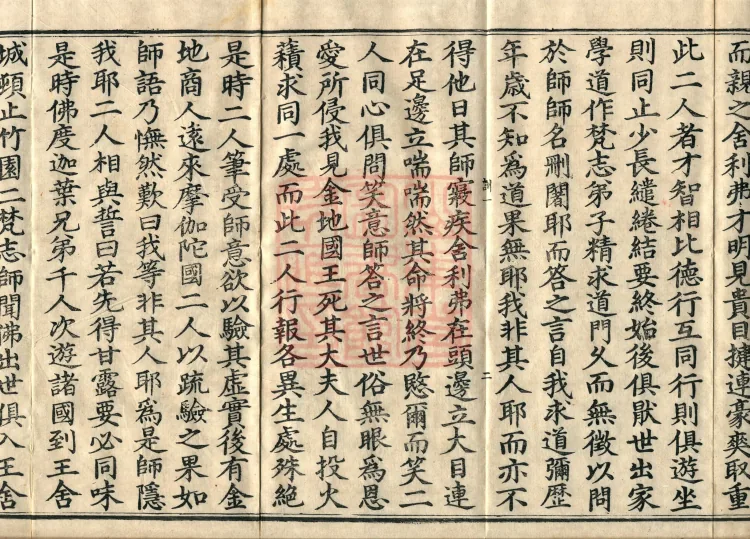 而親之舍利弗才明見貴目揵連豪爽取重
此二人者才智相比德行互同行則俱遊坐
則同止少長繾綣結要終始後俱猒世出家
學道作梵志弟子精求道門乆而無徵以問
於師師名刪闍耶而答之言自我求道彌歴
年歲不知爲道果無耶我非其人耶而亦不
得他日其師寢疾舍利弗在頭邊立大目連
在足邊立喘喘然其命將終乃愍爾而笑二
人同心俱問笑意師答之言世俗無眼爲恩
愛所侵我見金地國王死其大夫人自投火
𧂐求同一處而此二人行報各異生處殊絶
是時二人筆受師意欲以驗其虚實後有金
地商人遠來摩伽陀國二人以疏驗之果如
師語乃憮然歎曰我等非其人耶爲是師隱
我耶二人相與誓曰若先得甘露要必同味
是時佛度迦葉兄弟千人次遊諸國到王舍
城頓止竹園二梵志師聞佛出世俱入王舍